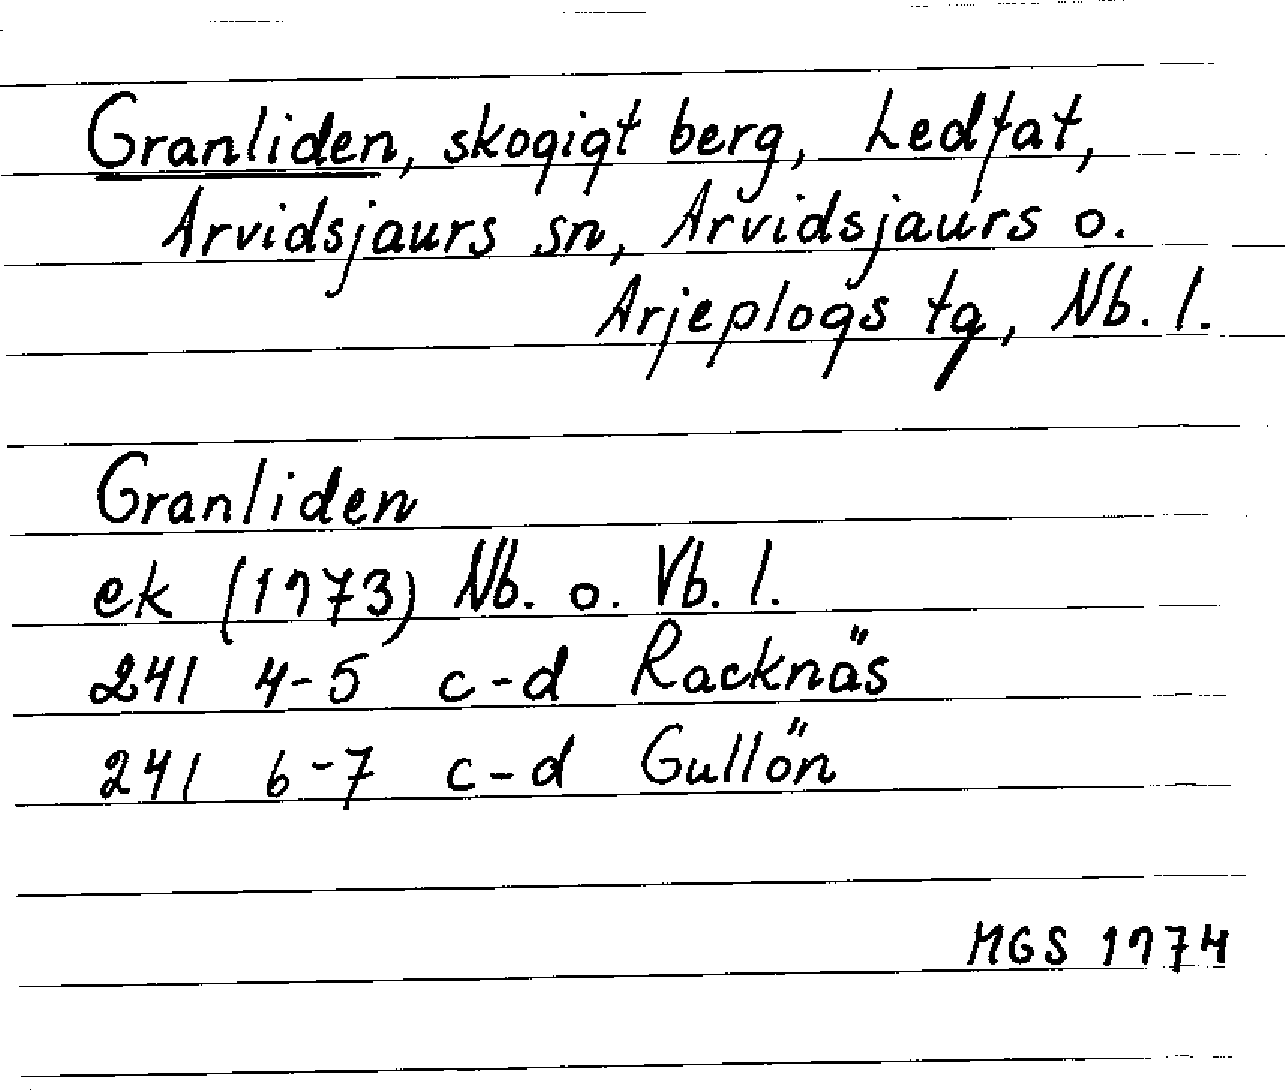 Granliden, skogigt berg, Ledfat,
Arvidsjaurs sn, Arvidsjaurs o.
Arjeplogs tg, Nb. l.
Granliden
ek (1973) Nb. o. Vb. l.
241 4-5 c-d Racknäs
241 6-7 c-d Gullön
MGS 1974